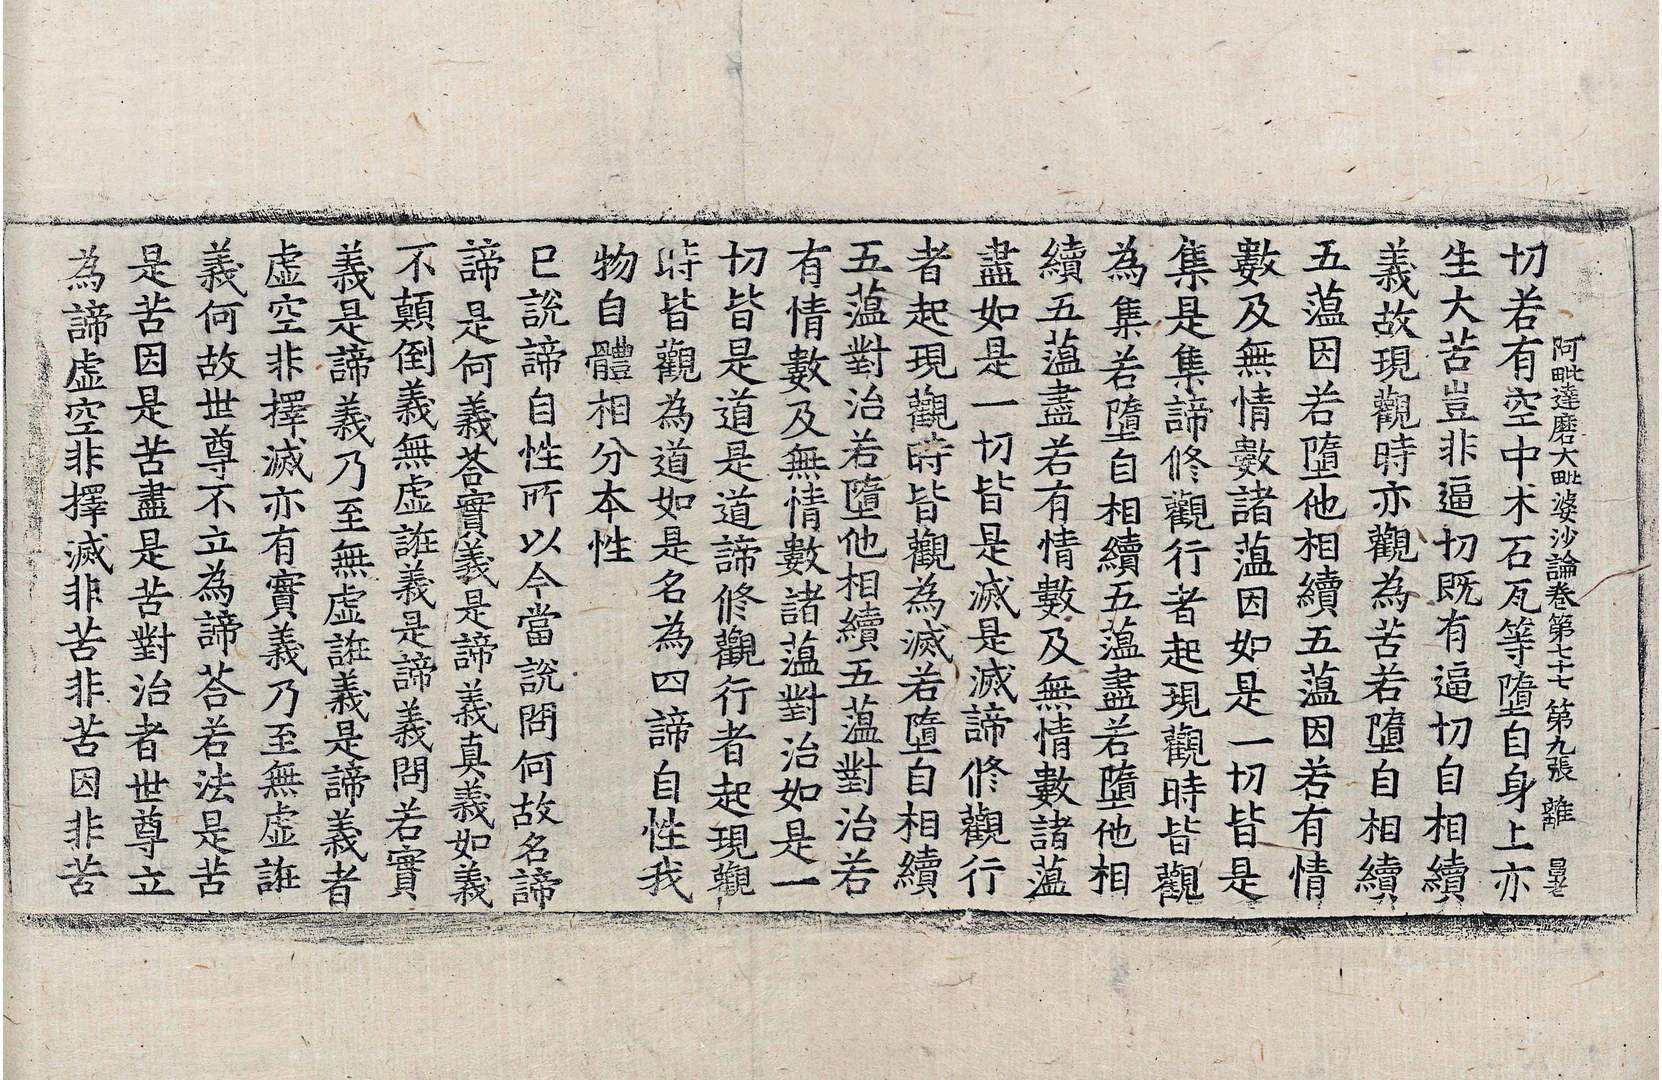 阿毗達磨大毗婆沙論卷第七十七 第九張 離 昌老
切若有空中木石瓦等墮自身上亦
生大苦豈非逼切既有逼切自相續
義故現觀時亦觀為苦若墮自相續
五薀因若墮他相續五薀因若有情
數及無情數諸薀因如是一切皆是
集是集諦修觀行者起現觀時皆觀
為集若墮自相續五薀盡若墮他相
續五薀盡若有情數及無情數諸薀
盡如是一切皆是滅是滅諦修觀行
者起現觀時皆觀為滅若墮自相續
五薀對治若墮他相續五薀對治若
有情數及無情數諸薀對治如是一
切皆是道是道諦修觀行者起現觀
時皆觀為道如是名為四諦自性我
物自體相分本性
已說諦自性所以今當說問何故名諦
諦是何義荅實義是諦義真義如義
不顛倒義無虛誑義是諦義問若實
義是諦義乃至無虛誑義是諦義者
虛空非擇滅亦有實義乃至無虛誑
義何故世尊不立為諦荅若法是苦
是苦因是苦盡是苦對治者世尊立
為諦虛空非擇滅非苦非苦因非苦